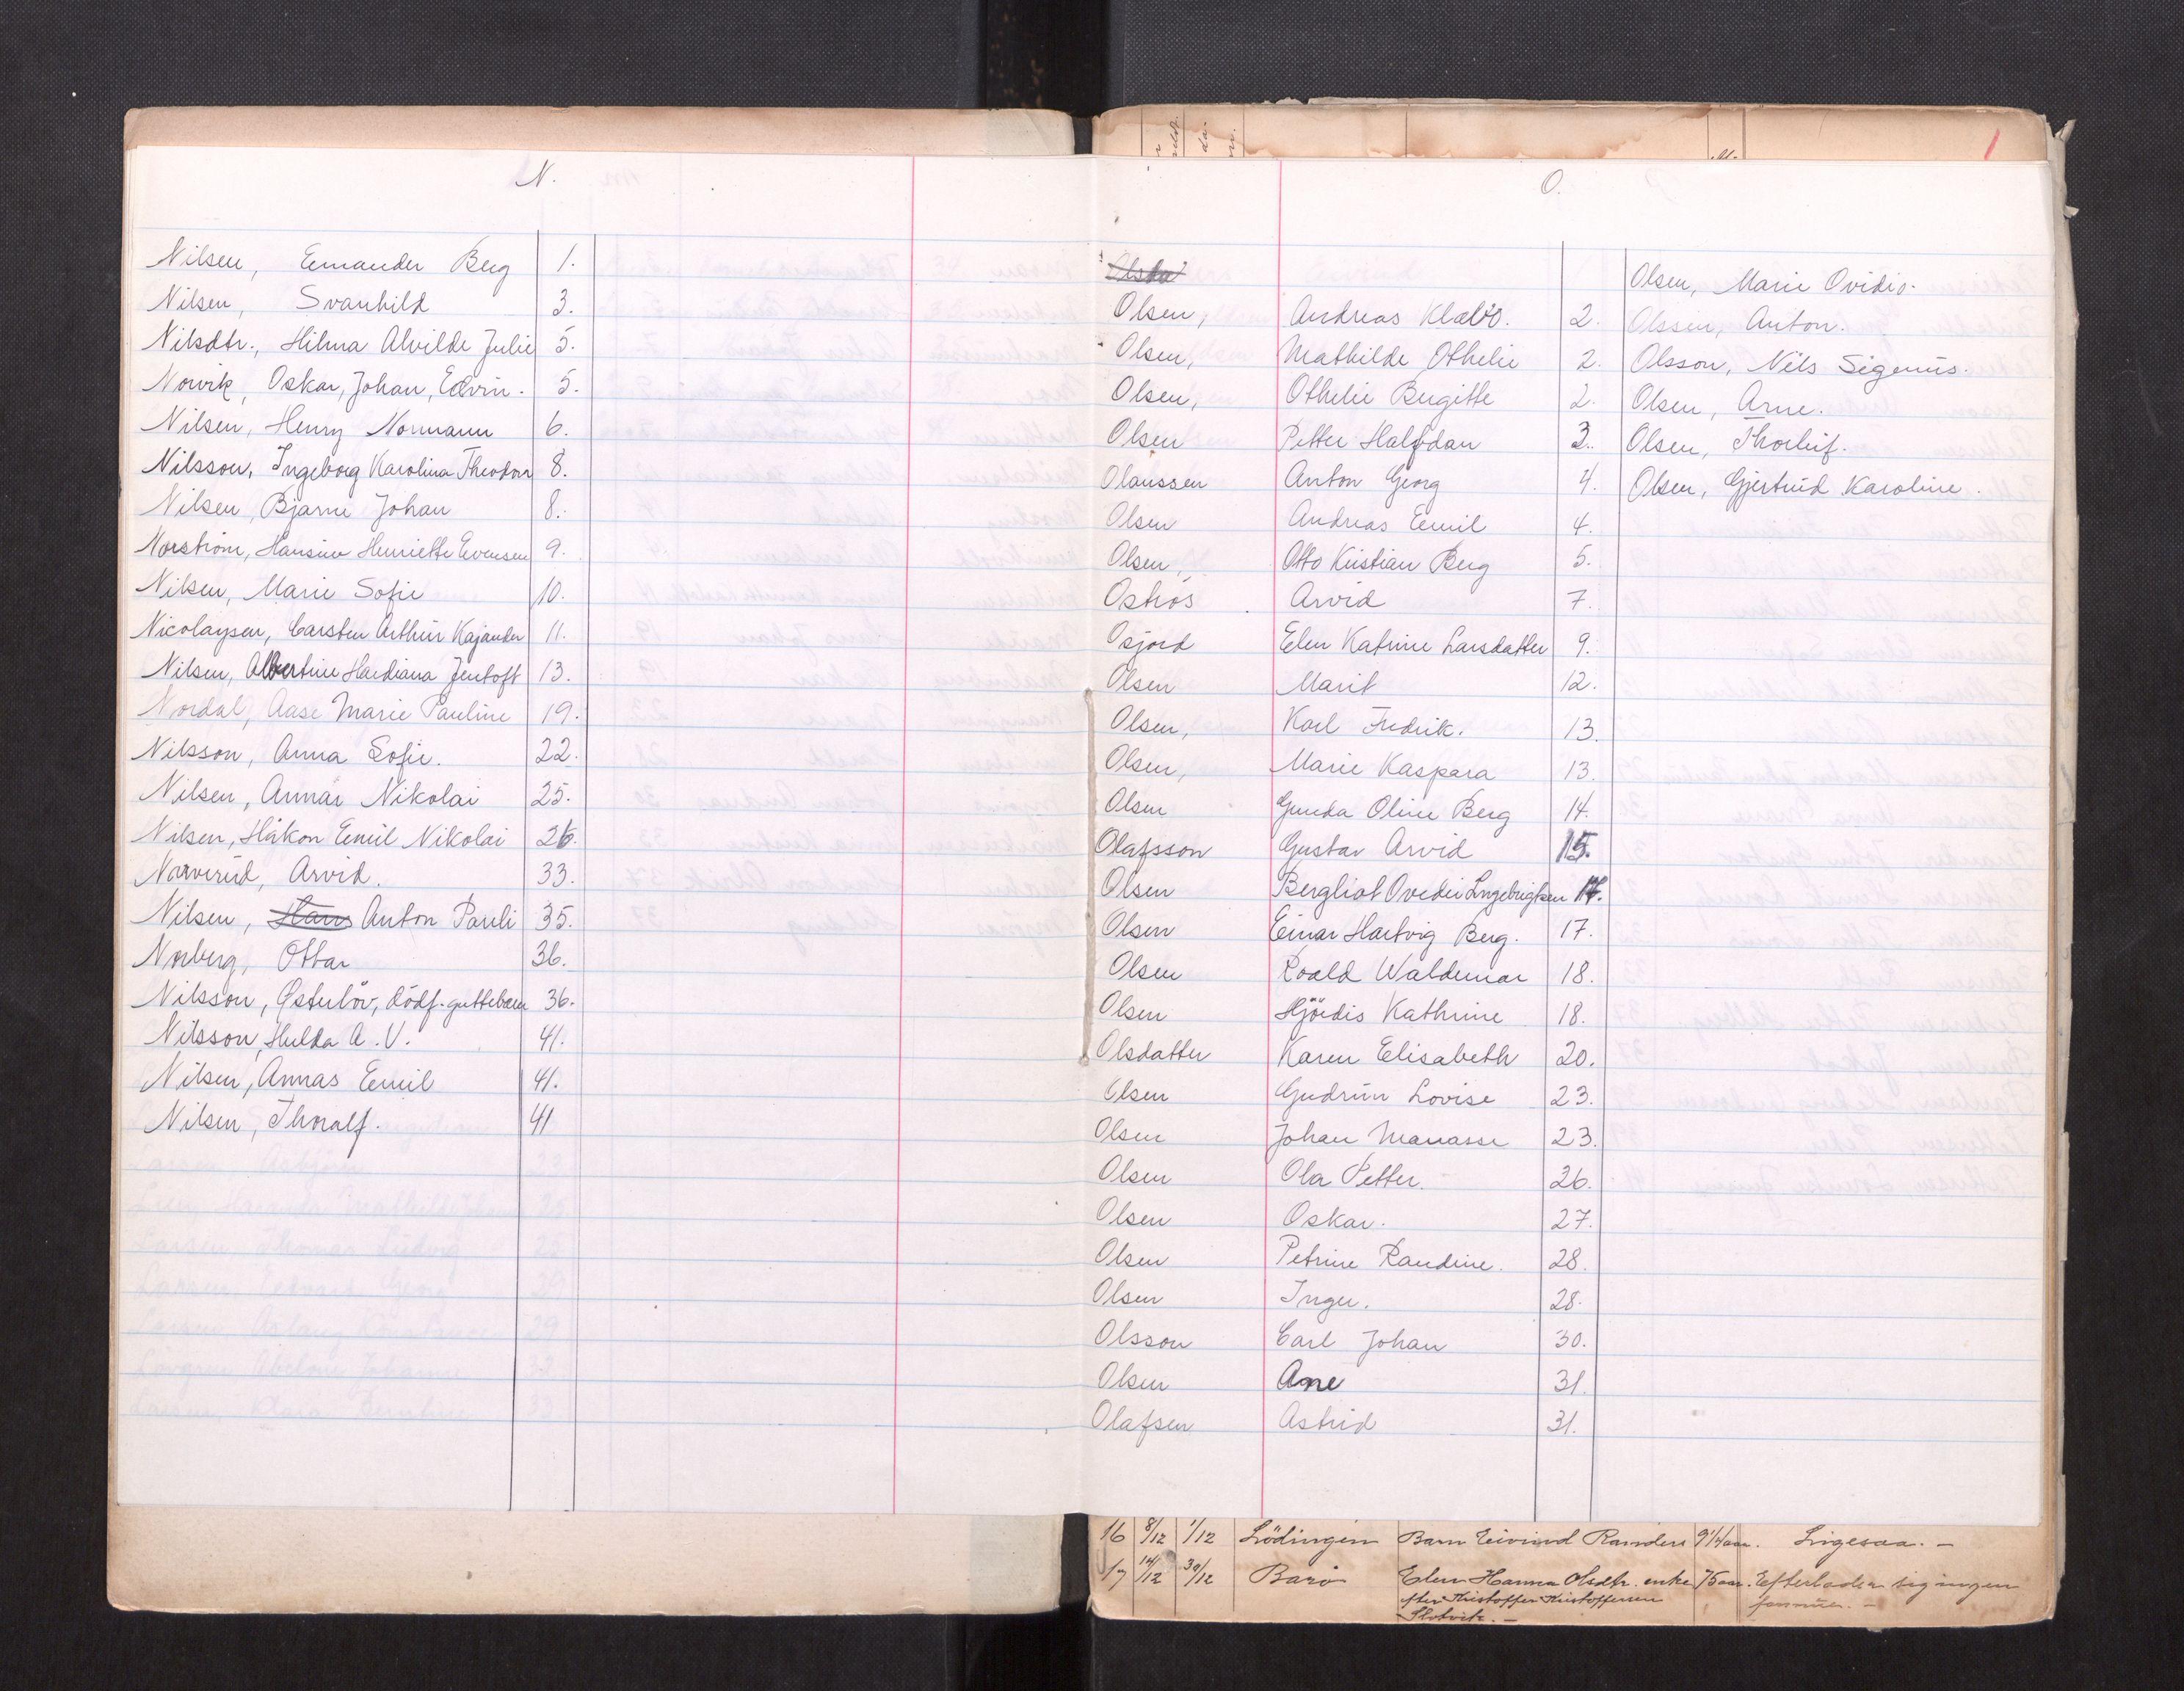 N.
Nilsen, Ernander Berg 1.
Nilsen, Svanhild 3.
Nilsdtr., Hilma Alvilde Julie 5.
Norvik, Oskar, Johan, Edvin. 5.
Nilsen, Henry Normann 6.
Nilsson, Ingeborg Karolina Theodora 8.
Nilsen, Bjarne Johan 8.
Norström, Hansine Henriette Evensen 9.
Nilsen, Marie Sofie 10.
Nicolaysen, Carsten Arthur Kajander 11.
Nilsen, Albertine Hardiana Jentoft 13.
Nordal, Aase Marie Pauline 19.
Nilsson, Anna Sofie. 22.
Nilsen, Annar Nikolai 25.
Nilsen, Håkon Emil Nikolai 26.
Narverud, Arvid. 33.
Nilsen, Hans Anton Pauli 35.
Norberg, Ottar 36.
Nilsson, Østerlöv, dödf. guttebarn 36.
Nilsson, Hulda A. V. 41.
Nilsen, Annas Emil 41.
Nilsen, Thoralf. 41
O.
Olsen, Andreas Klæbo. 2.
Olsen, Mathilde Othelie 2.
Olsen, Othelie Birgitte 2.
Olsen Petter Halfdan 3.
Olaussen Anton Georg 4.
Olsen Andreas Emil 4.
Olsen, Otto Kristian Berg 5.
Oströs Arvid 7.
Osjord Elen Katrine Larsdatter 9.
Olsen Marit 12.
Olsen, Karl Fredrik. 13.
Olsen, Marie Kaspara 13.
Olsen Gunda Oline Berg 14.
Olafsson Gustav Arvid 15.
Olsen Bergliot Ovedie Ingebrigtsen 17.
Olsen Einar Hartvig Berg. 17.
Olsen Roald Waldemar 18.
Olsen Hjördis Kathrine 18.
Olsdatter Karen Elisabeth 20.
Olsen Gudrun Lovise 23.
Olsen Johan Manasse 23.
Olsen Ola Petter. 26.
Olsen Oskar. 27.
Olsen Petrine Randine. 28.
Olsen Inger. 28.
Olsson Carl Johan 30.
Olsen Ane 31.
Olafsen Astrid 31.
Olsen, Marie Ovidie.
Olssen, Anton.
Olsson, Nils Sigenius.
Olsen, Arne.
Olsen, Thorleif.
Olsen, Gjertrud Karoline.
16 8/12 1/12 Lödingen Barn Eivind Randers 9 1/4 aar. Ligesaa. -
17 14/12 30/12 Barö Elen Hanna Olsdtr. enke 75 aar. Efterlader sig ingen
efter Kristoffer Kristoffersen formue. -
Slotvik. -